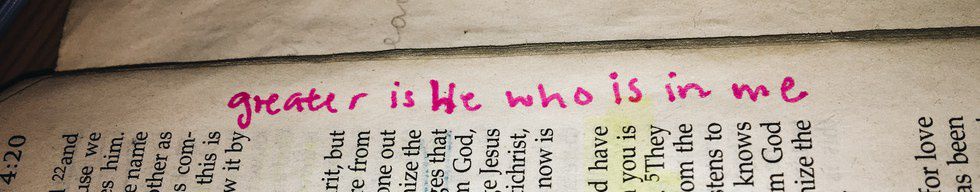 greater is He who is in me
4:20
22 and
use we
s him.
name
other as
s com-
this is
w it by
rit, but
e from
one out
nize the
ses that
m God,
e Jesus
ichrist,
now is
d have
you is
5They
om the
stens to
knows
m God
nize the
for love
s been